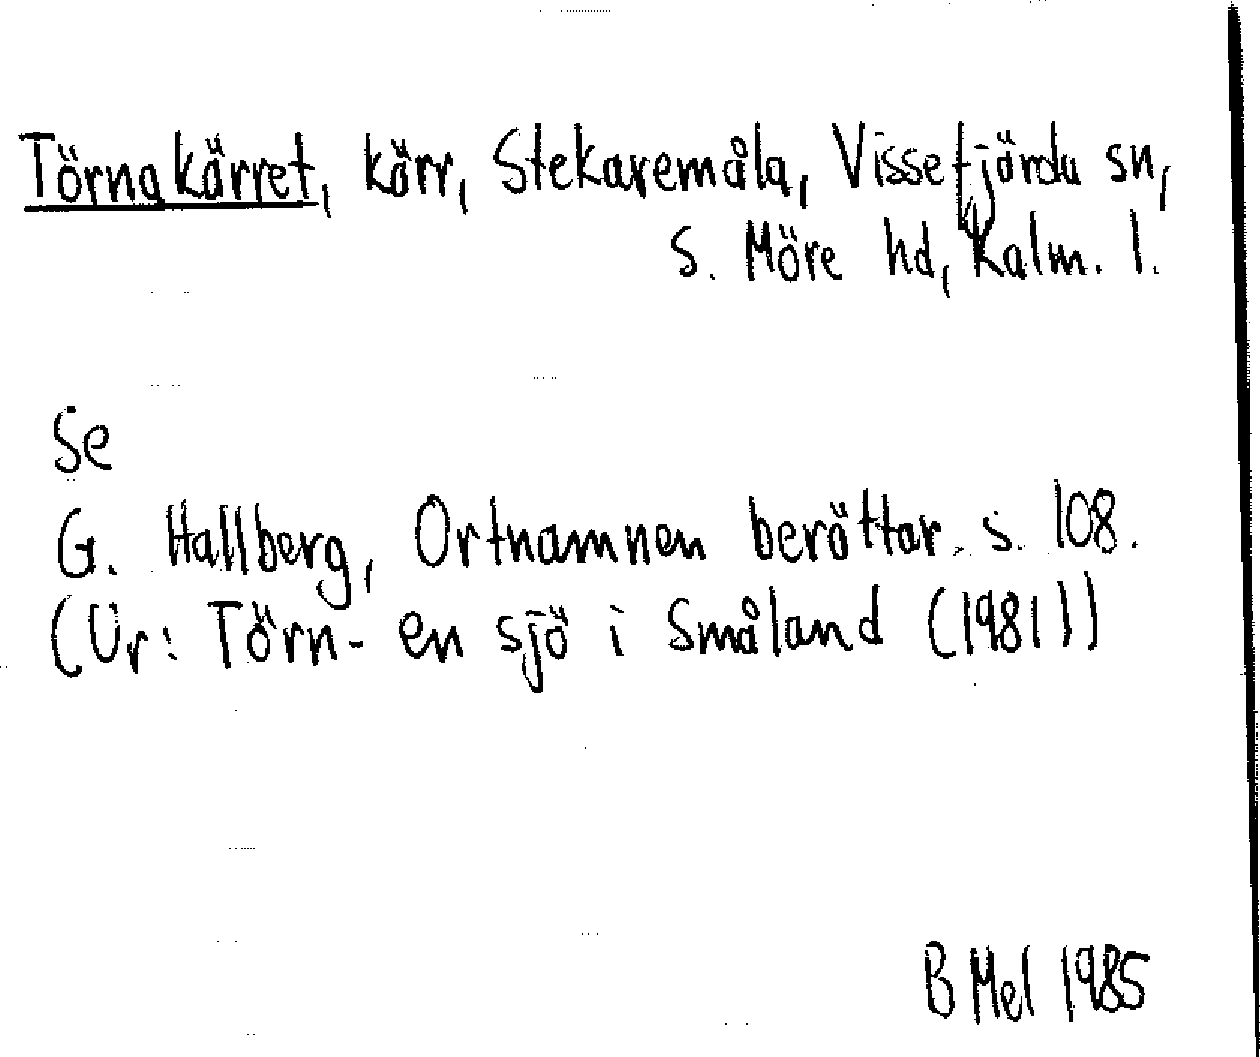 Törnakärret, kärr, Stekaremåla, Vissefjärda sn,
S. Möre hd, Kalm. l.
Se
G. Hallberg, Ortnamnen berättar. s. 108.
(Ur: Törn- en sjö i Småland (1981))
B Mel 1985